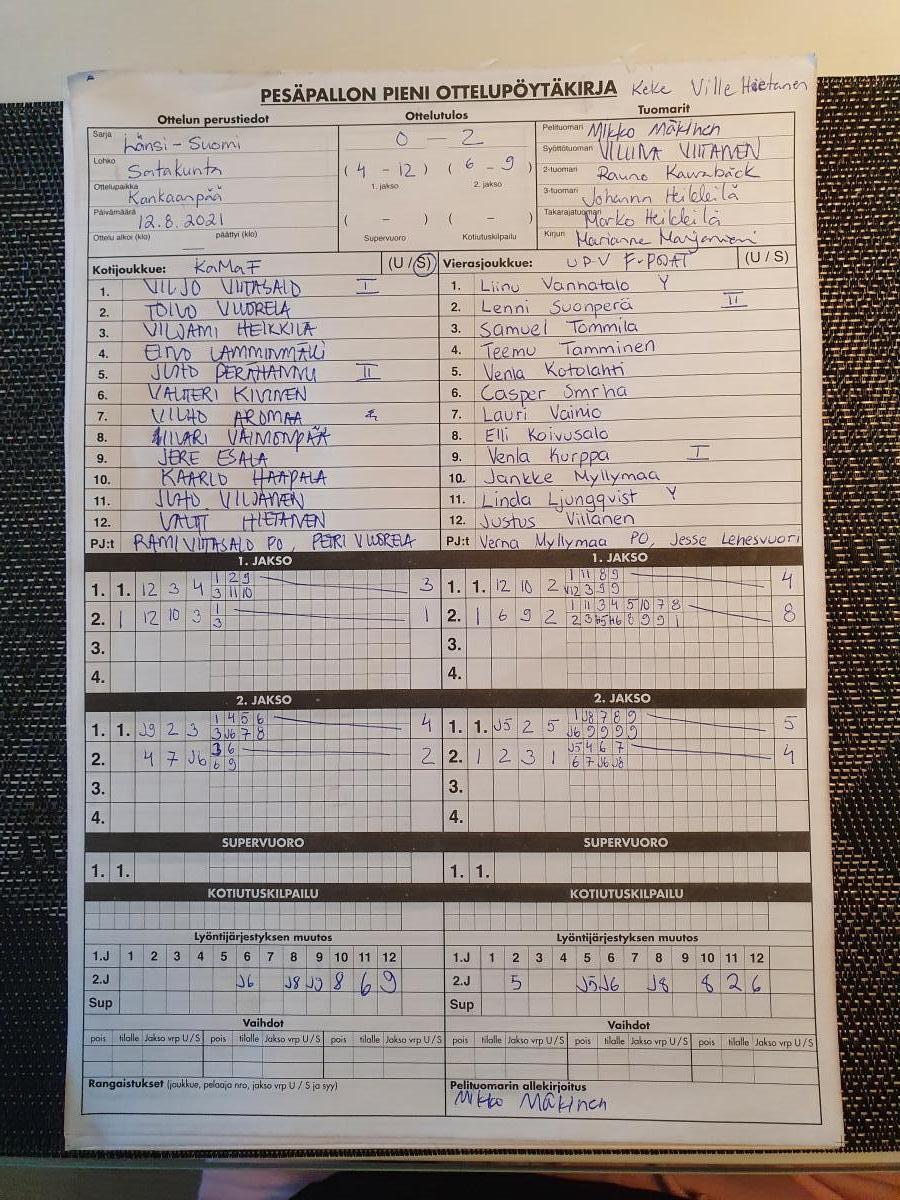 PESÄPALLON PIENI OTTELUPÖYTÄKIRJA Keke Ville Hietanen
Ottelun perustiedot Ottelutulos Tuomarit
Sarja Länsi-Suomi 0 - 2 Pelituomari Mikko Mäkinen
Lohko Satakunta (4 - 12) (6 - 9) Syöttötuomari VILLINA VIITANEN
1. jakso 2. jakso 2-tuomari Rauno
Ottelupaikka Kankaanpää 3-tuomari Johanna Heikkilä
Päivämäärä 12.8.2021 ( - ) ( - ) Takarajatuomari Marko Heikkilä
Ottelu alkoi (klo) päättyi (klo) Supervuoro Kotiutuskilpailu Kirjuri Marianne
Kotijoukkue: KaMaF (U / S) Vierasjoukkue: UPV F-POJAT (U / S)
1. VILJO VIITASALO I 1. Liinu Vannatalo Y
2. TOIVO VUORELA 2. Lenni Suonperä II
3. VILJAMI HEIKKILÄ 3. Samuel Tommila
4. EINO LAMMINMÄKI 4. Teemu Tamminen
5. JUHO PERÄHANNU II 5. Venla Kotolahti
6. VALTTERI KIVINEN 6. Casper Smrha
7. VILHO AROMAA 7. Lauri Vainio
8. IIVARI VAIMONPÄÄ 8. Elli Koivusalo
9. JERE ESALA 9. Venla Kurppa I
10. KAARLO HAAPALA 10. Jankke Myllymaa
11. JUHO VILJANEN 11. Linda Ljungqvist Y
12. VALTT HIETANEN 12. Justus Villanen
PJ:t RAMI VIITASALO PO, PETRI VUORELA PJ:t Verna Myllymaa PO, Jesse Lehesvuori
1. JAKSO 1. JAKSO
1 2 9 1 11 8 9
1. 1. 12 3 4 3 11 10 3 1. 1. 12 10 2 12 3 9 9 4
1 1 11 3 4 5 10 7 8
2. 1 12 10 3 3 1 2. 1 6 9 2 8
3. 3.
4. 4.
2. JAKSO 2. JAKSO
1 4 5 6 1 J8 7 8 9
1. 1. J9 2 3 3 J6 7 8 4 1. 1. J5 2 5 J6 9 9 9 9 5
3 6 J5 4 6 7
2. 4 7 J6 6 9 2 2. 1 2 3 1 6 7 J6 J8 4
3. 3.
4. 4.
SUPERVUORO SUPERVUORO
1. 1. 1. 1.
KOTIUTUSKILPAILU KOTIUTUSKILPAILU
Lyöntijärjestyksen muutos Lyöntijärjestyksen muutos
1.J 1 2 3 4 5 6 7 8 9 10 11 12 1.J 1 2 3 4 5 6 7 8 9 10 11 12
2.J J6 J8 J9 8 6 9 2.J 5 J5 J6 J8 8 2 6
Sup Sup
Vaihdot Vaihdot
pois tilalle Jakso vrp U / S pois tilalle Jakso vrp U / S pois tilalle Jakso vrp U / S pois tilalle Jakso vrp U / S pois tilalle Jakso vrp U / S pois tilalle Jakso vrp U / S
Rangaistukset (joukkue, pelaaja nro, jakso vrp U / S ja syy) Pelituomarin allekirjoitus
Mikko Mäkinen